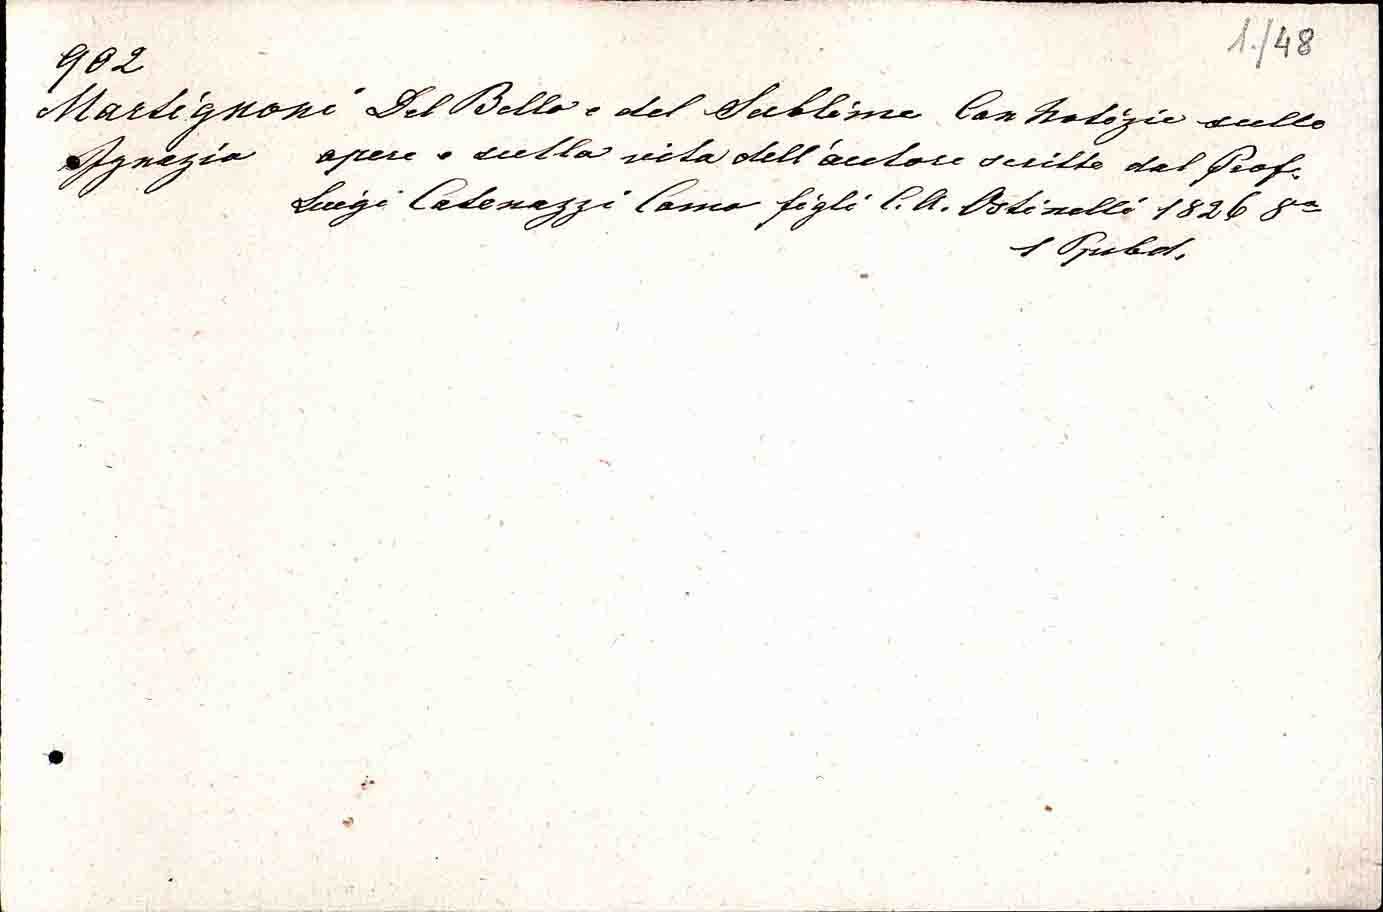 1./48
902
Martignoni Del Bello e del Sublime Con Notizie sulle
Ignazio opere e sulla vita dell'autore scritte dal Prof.
Luigi Catenazzi Como figli C. A. Ostinelli 1826 8vo
1